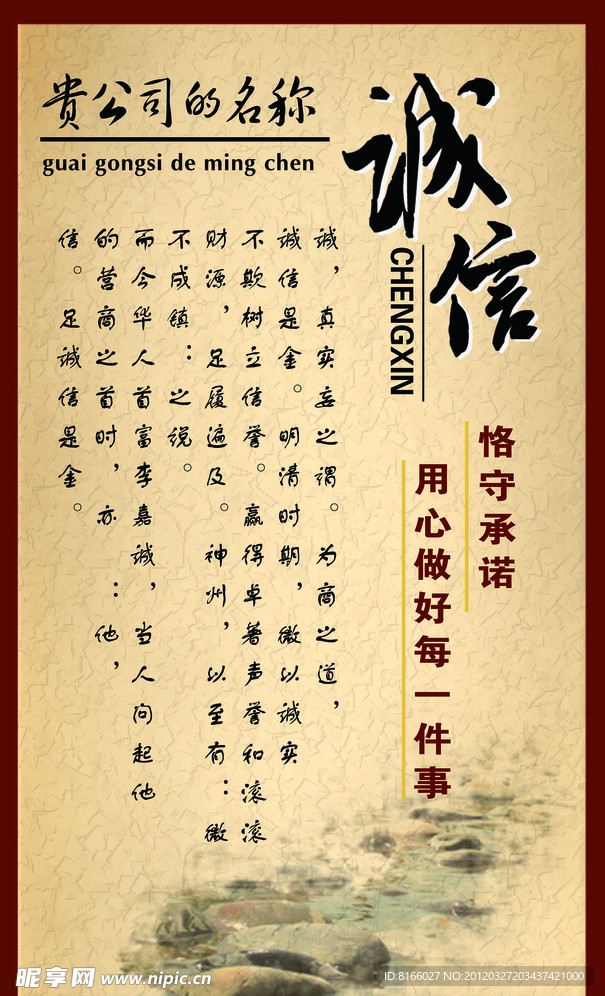 貴公司的名称
guai gongsi de ming chen
誠信
CHENGXIN
恪守承诺
用心做好每一件事
诚，真实妄之谓。为商之道，
诚信是金。明清时期，微以诚实
不欺树立信誉。赢得卓著声誉和滚滚
财源，足履遍及。神州，以至有：微
不成镇：之说。
而今华人首富李嘉诚，当人问起他
的营商之首时，亦：他，
信。足诚信是金。
昵享网 www.nipic.cn
ID:8166027 NO:20120327203437421000